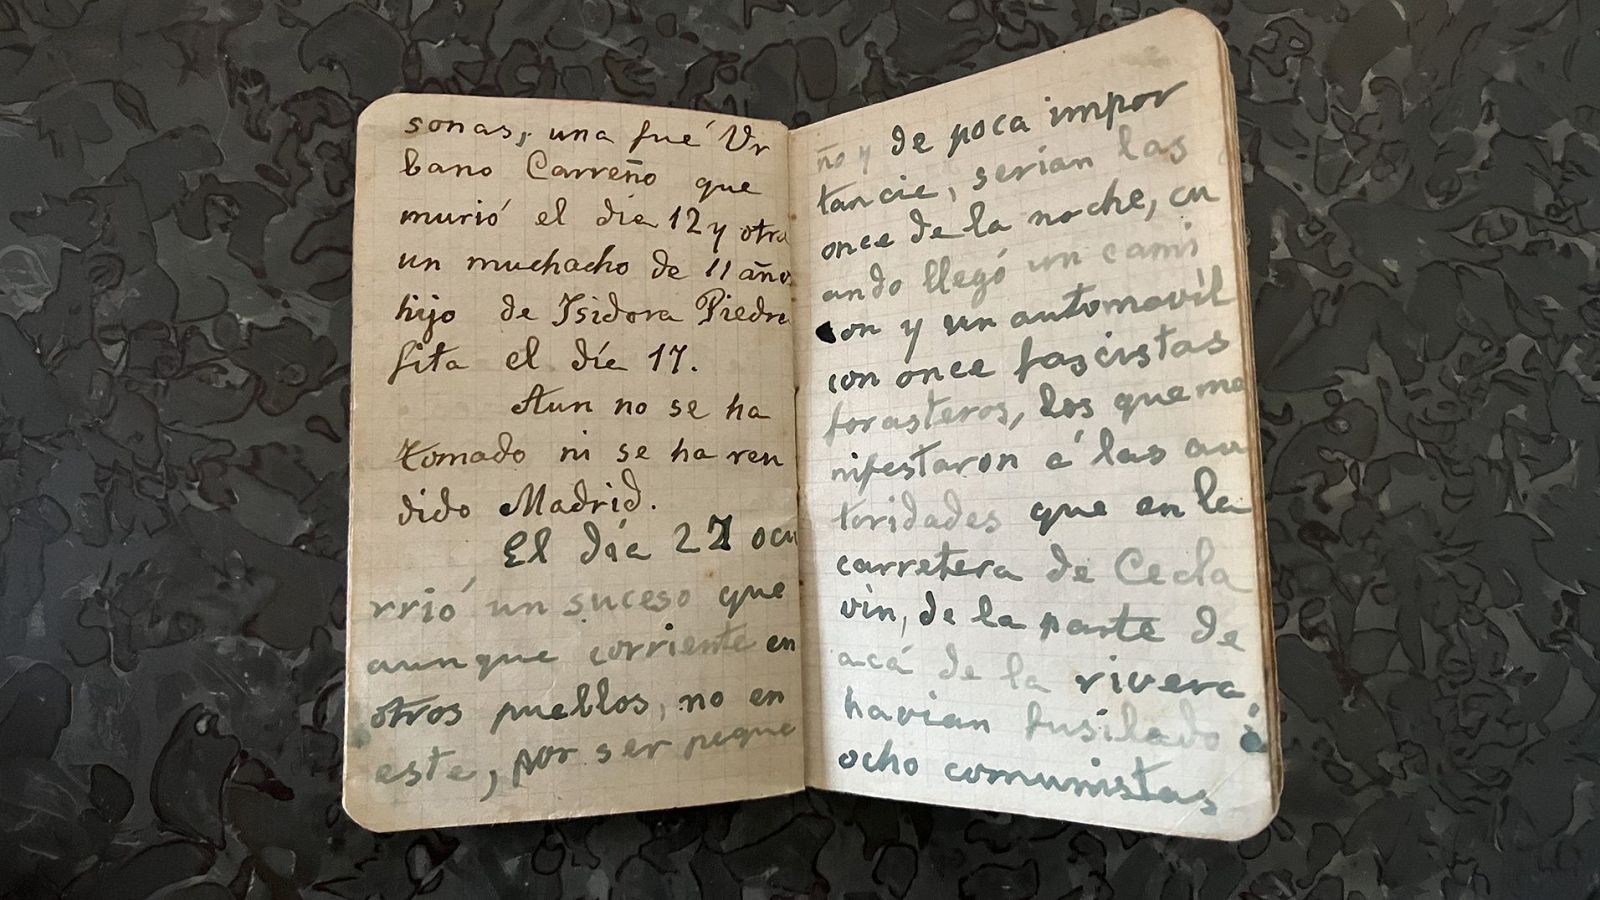 sonas, una fué Ur
bano Carreño que
murió el día 12 y otra
un muchacho de 11 años
hijo de Isidora Piedra
fita el día 17.
Aun no se ha
tomado ni se ha ren
dido Madrid.
El día 27 ocu
rrió un suceso que
aunque corriente en
otros pueblos, no en
este, por ser peque
ño y de poca impor
tancia, serian las
once de la noche, cu
ando llegó un cami
on y un automovíl
con once fascistas
forasteros, los que ma
nifestaron á las au
toridades que en la
carretera de Cecla
vin, de la parte de
acá de la rivera,
havian fusilado á
ocho comunistas